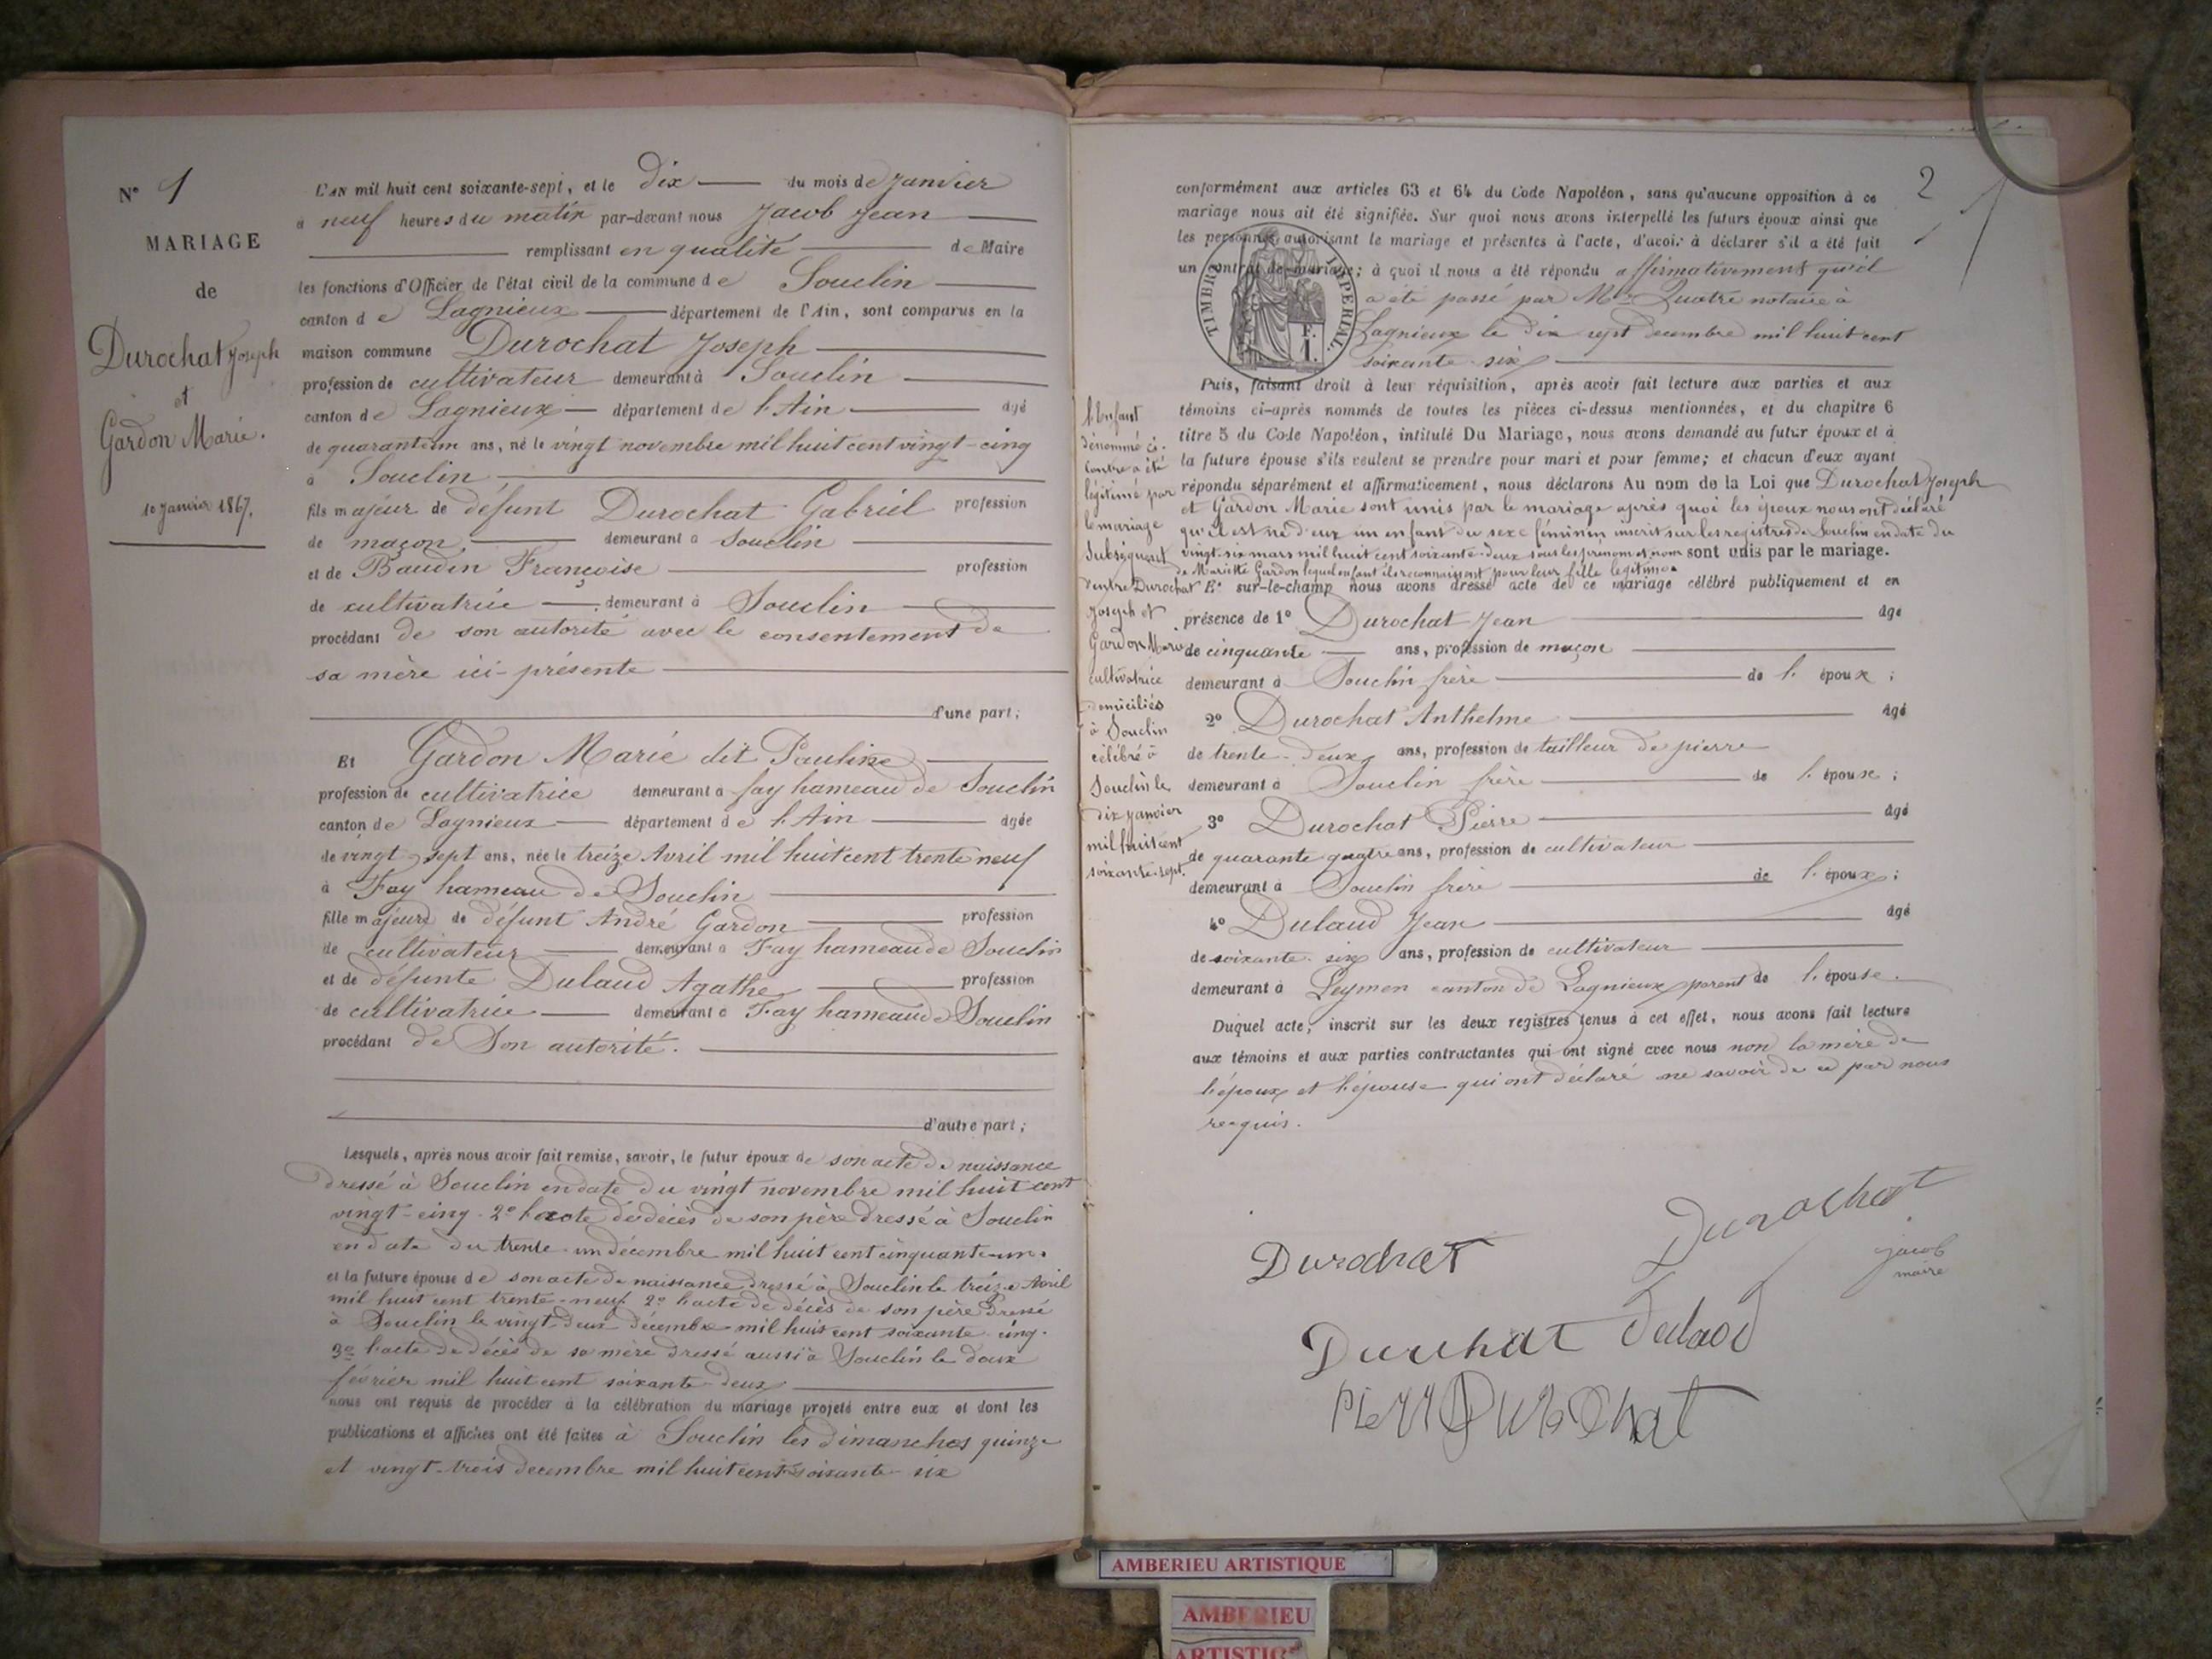 N° 1
MARIAGE
de
Durochat Joseph
et
Gardon Marie.
10 Janvier 1867.
L'AN mil huit cent soixante-sept, et le Dix du mois de Janvier
à neuf heures du matin par-devant nous Jacob Jean
remplissant en qualité de Maire
les fonctions d'Officier de l'état civil de la commune de Souclin
canton de Lagnieux département de l'Ain, sont comparus en la
maison commune Durochat Joseph
profession de cultivateur demeurant à Souclin
canton de Lagnieux département de l'Ain âgé
de quarante un ans, né le vingt novembre mil huit cent vingt-cinq
à Souclin
fils majeur de défunt Durochat Gabriel profession
de maçon, demeurant à Souclin
et de Baudin Françoise profession
de cultivatrice demeurant à Souclin
procédant de son autorité avec le consentement de
sa mère ici-présente
d'une part;
Et Gardon Marie dit Pauline
profession de cultivatrice demeurant à fay hameau de Souclin
canton de Lagnieux département de l'Ain âgée
de vingt sept ans, née le treize Avril mil huit cent trente neuf
à Fay hameau de Souclin
fille majeure de défunt André Gardon profession
de cultivateur demeurant à Fay hameau de Souclin
et de défunte Dulaud Agathe profession
de cultivatrice demeurant à Fay hameau de Souclin
procédant de Son autorité.
d'autre part;
Lesquels, après nous avoir fait remise, savoir, le futur époux de son acte de naissance
dressé à Souclin en date du vingt novembre mil huit cent
vingt-cinq. 2° l'acte de décès de son père dressé à Souclin
en date du trente-un décembre mil huit cent cinquante-un.
et la future épouse de son acte de naissance dressé à Souclin le treize Avril
mil huit cent trente-neuf. 2° l'acte de décès de son père dressé
à Souclin le vingt-deux décembre mil huit cent soixante-cinq.
3° l'acte de décès de sa mère dressé aussi à Souclin le doux
février mil huit cent soixante-deux
nous ont requis de procéder à la célébration du mariage projeté entre eux et dont les
publications et affiches ont été faites à Souclin les dimanches quinze
et vingt-trois decembre mil huit cent soixante-six
2
conformément aux articles 63 et 64 du Code Napoléon, sans qu'aucune opposition à ce
mariage nous ait été signifiée. Sur quoi nous avons interpellé les futurs époux ainsi que
les personnes autorisant le mariage et présentes à l'acte, d'avoir à déclarer s'il a été fait
un contrat de mariage; à quoi il nous a été répondu affirmativement qu'il
a été passé par Me Quatre notaire à
Lagnieux le dix sept decembre mil huit cent
soixante-six
TIMBRE IMPERIAL
F. 1.
Puis, faisant droit à leur réquisition, après avoir fait lecture aux parties et aux
témoins ci-après nommés de toutes les pièces ci-dessus mentionnées, et du chapitre 6
titre 5 du Code Napoléon, intitulé Du Mariage, nous avons demandé au futur époux et à
la future épouse s'ils veulent se prendre pour mari et pour femme; et chacun d'eux ayant
répondu séparément et affirmativement, nous déclarons Au nom de la Loi que Durochat Joseph
et Gardon Marie sont unis par le mariage après quoi les époux nous ont déclaré
qu'il est né d'eux un enfant du sexe féminin inscrit sur les registres de Souclin en date du
vingt-six mars mil huit cent soixante-deux sous les prenom et nom sont unis par le mariage.
de Mariette Gardon lequel enfant ils reconnaissent pour leur fille legitime
Et sur-le-champ nous avons dressé acte de ce mariage célébré publiquement et en
présence de 1° Durochat Jean âgé
de cinquante ans, profession de maçon
demeurant à Souclin frère de l'époux;
2° Durochat Anthelme âgé
de trente-deux ans, profession de tailleur de pierre
demeurant à Souclin frère de l'épouse;
3° Durochat Pierre âgé
de quarante quatre ans, profession de cultivateur
demeurant à Souclin frère de l'époux;
4° Dulaud Jean âgé
de soixante-six ans, profession de cultivateur
demeurant à Leymen canton de Lagnieux parent de l'épouse.
Duquel acte, inscrit sur les deux registres tenus à cet effet, nous avons fait lecture
aux témoins et aux parties contractantes qui ont signé avec nous non la mère de
l'époux et l'épouse qui ont déclaré ne savoir de ce par nous
requis.
L'Enfant
dénommé ci-
contre a été
légitimé par
le mariage
Subséquent
d'entre Durochat
Joseph et
Gardon Marie
cultivatrice
domiciliés
à Souclin
célébré à
Souclin le
dix janvier
mil huit cent
soixante-sept.
Durochat
Durochat
jacob
maire
Duruhat
Dulaod
Pierr Durochat
AMBERIEU ARTISTIQUE
AMBERIEU
ARTISTIQ